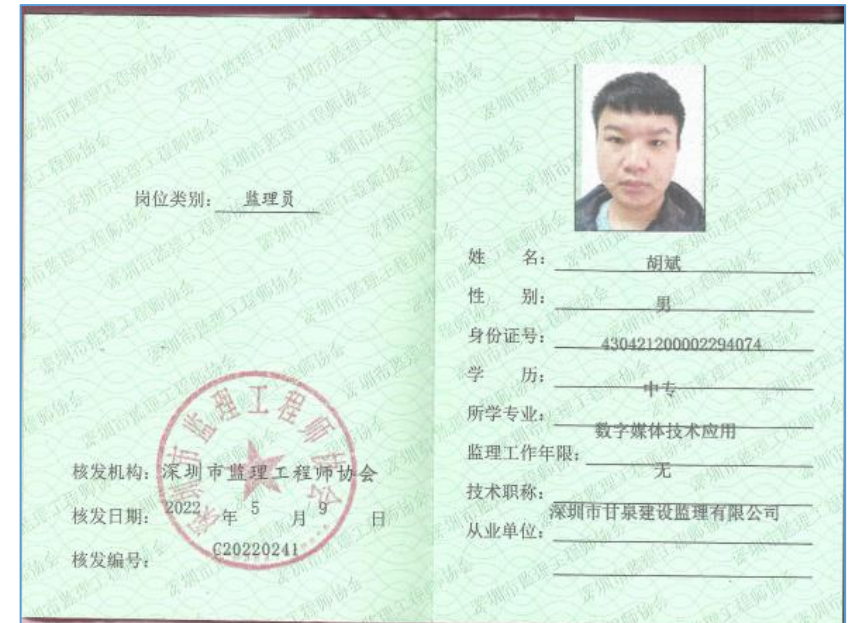 岗位类别： 监理员
核发机构：深圳市监理工程师协会
核发日期： 2022 年 5 月 9 日
核发编号： C20220241
深圳市监理工程师协会
姓 名： 胡斌
性 别： 男
身份证号： 430421200002294074
学 历： 中专
所学专业： 数字媒体技术应用
监理工作年限： 无
技术职称：
从业单位： 深圳市甘泉建设监理有限公司